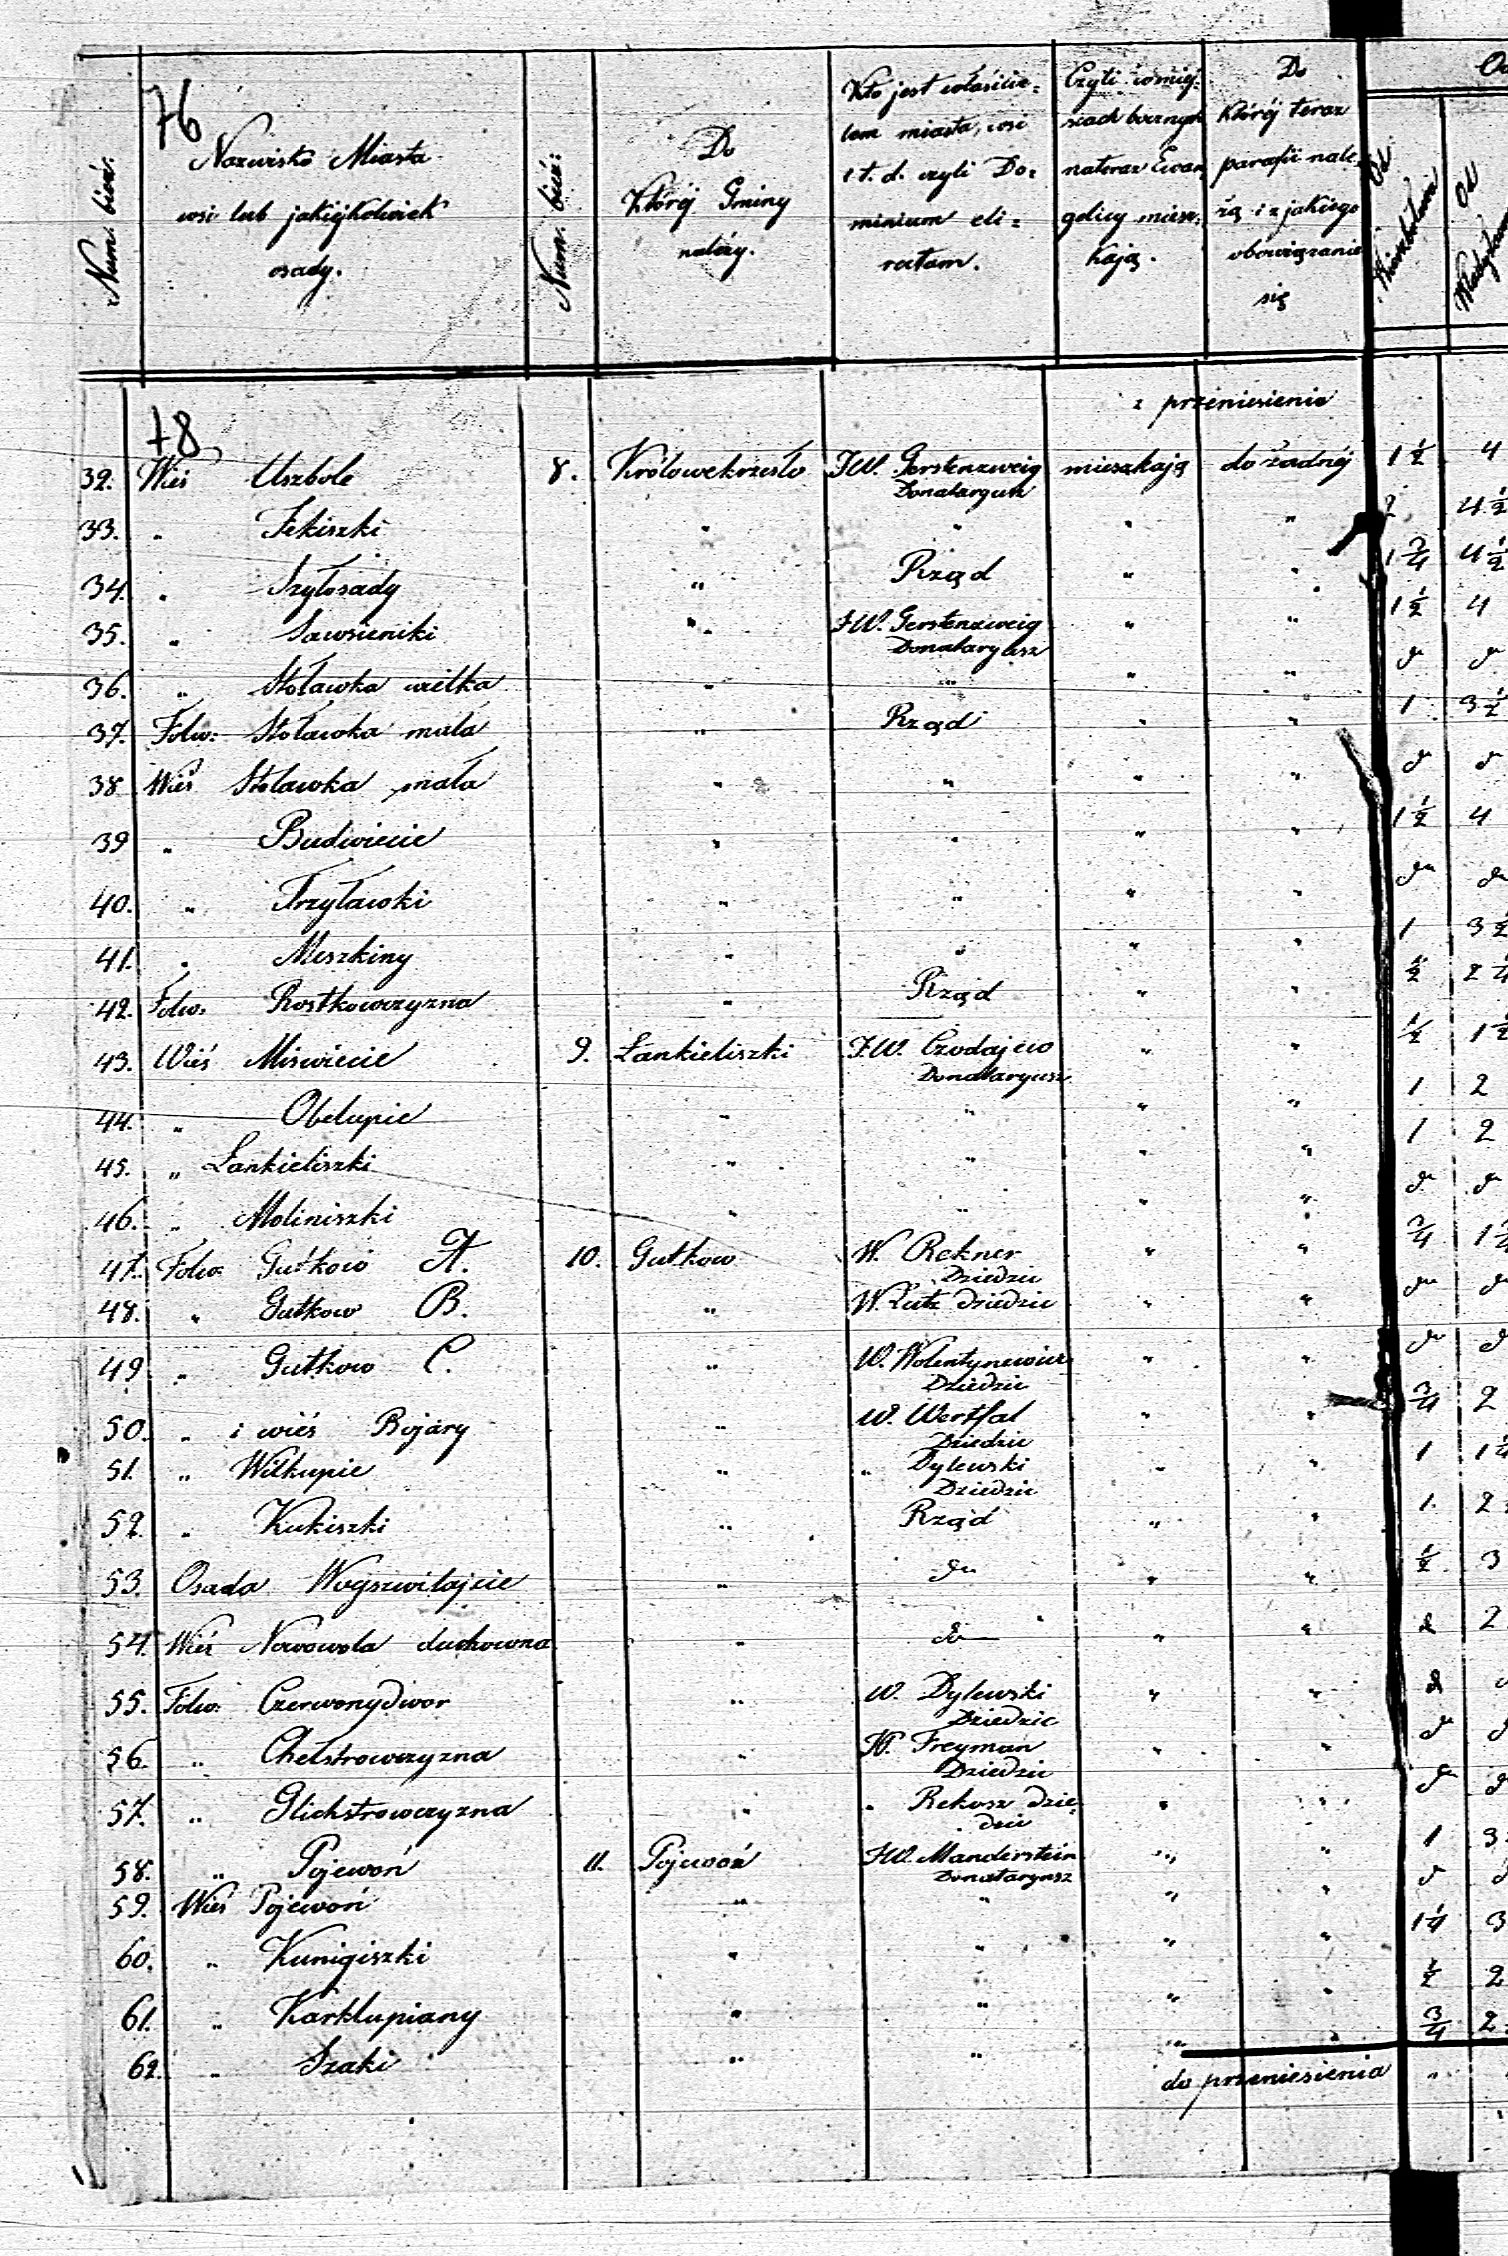 76
Num. bież.
Nazwisko Miasta
wsi lub jakiéjkolwiek
osady.
Num. bież:
Do
Któréj Gminy
należy.
Kto jest właścicie=
lem miasta, wsi
i t. d. czyli Do=
minium eli=
ratam.
Czyli w miéj=
scach tecznych
nateraz Ewan
gelicy miesz=
kają.
Do
któréj teraz
parafii nale
żą i z jakiego
obowiązanie
się
Od
Od
78
z przeniesienia
32. Wieś Uszbole 8. Królowekrzesło JW. Gerstenzweig mieszkają do żadnéj 1½ 4
Donataryusz
33. " Jekiszki " " " " 2 4½
34. " Szyłosady " Rząd " " 1¾ 4½
35. " Sawsieniki " JW. Gerstenzweig " " 1½ 4
Donataryusz
36. " Stoławka wielka " " " " d° d°
37. Folw: Stoławka mała " Rząd " " 1 3½
38 Wieś Stoławka mała " " " " d° d°
39 " Budwiecie " " " " 1½ 4
40. " Trzyławki " " " " d° d°
41. " Meszkiny " " " " 1 3½
42. Folw. Rostkowczyzna " Rząd " " ½ 2¼
43. Wieś Miswiecie 9. Łankieliszki JW. Czodajew " " ½ 1½
Donataryusz
44. " Obelupie " " " " 1 2
45. " Łankieliszki " " " " 1 2
46. " Moliniszki " " " " d° d°
47. Folw. Gutkow A. 10. Gutkow W. Rekner " " ¾
Dziedzic
48. " Gutkow B. " W. Lutz dziedzic " " d° d°
49 " Gutkow C. " W. Wolentynewicz " " d° d°
Dziedzic
50. " i wieś Bojary " W. Wertfal " " ¾ 2
Dziedzic
51. " Wilkupie " " Dylewski " " 1 1¼
Dziedzic
52. " Kukiszki " Rząd " " 1. 2
53. Osada Wogszwilajcie " d° " " ½ 3
54. Wieś Nowowola duchowna " d° " " d° 2
55. Folw: Czerwonydwor " W. Dylewski " " d°
Dziedzic
56. " Chełstrowczyzna " W. Freyman " " d° d°
Dziedzic
57. " Glichstrowczyzna " " Rekosz dzie= " " d° d°
dzic
58. " Pojewoń 11. Pojewoń JW. Manderstein " " 1 3
Donataryusz
59. Wieś Pojewoń " " " " d° d°
60. " Kunigiszki " " " " 1¼ 3
61. " Karklupiany " " " " ½ 2
62. " Szaki " " " " ¾ 2
do przeniesienia "